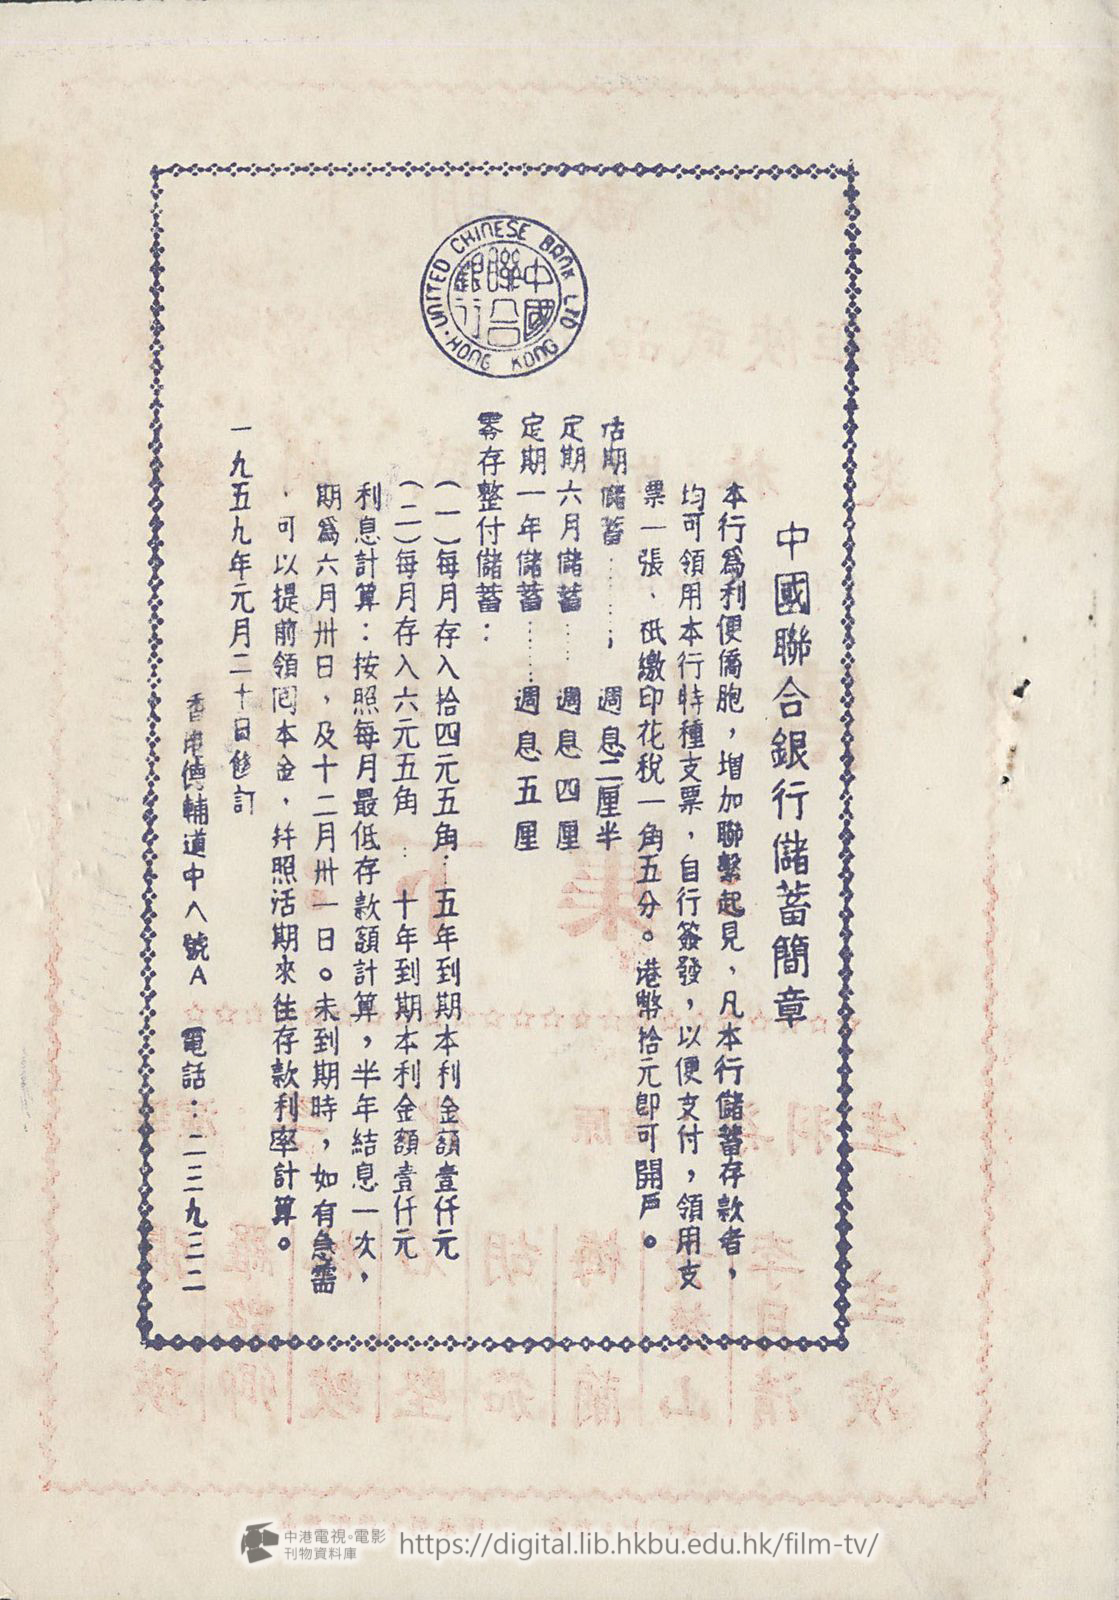 中國聯合銀行儲蓄簡章
本行爲利便僑胞，增加聯繫起見、凡本行儲蓄存款者，
均可領用本行特種支票，自行簽發，以便支付，領用支
票一張、祇繳印花稅一角五分。港幣拾元即可開戶。
活期儲蓄……； 週息二厘半
定期六月儲蓄…… 週息四厘
定期一年儲蓄…… 週息五厘
零存整付儲蓄：
（一）每月存入拾四元五角… 五年到期本利金額壹仟元
（二）每月存入六元五角… 十年到期本利金額壹仟元
利息計算：按照每月最低存款額計算，半年結息一次，
期爲六月卅日，及十二月卅一日。未到期時，如有急需
，可以提前領回本金，幷照活期來往存款利率計算。
一九五九年元月二十日修訂
香港德輔道中八號A 電話：二三九三二
UNITED CHINESE BANK LTD
·HONG KONG
中國聯合銀行
中港電視·電影
刊物資料庫
https://digital.lib.hkbu.edu.hk/film-tv/